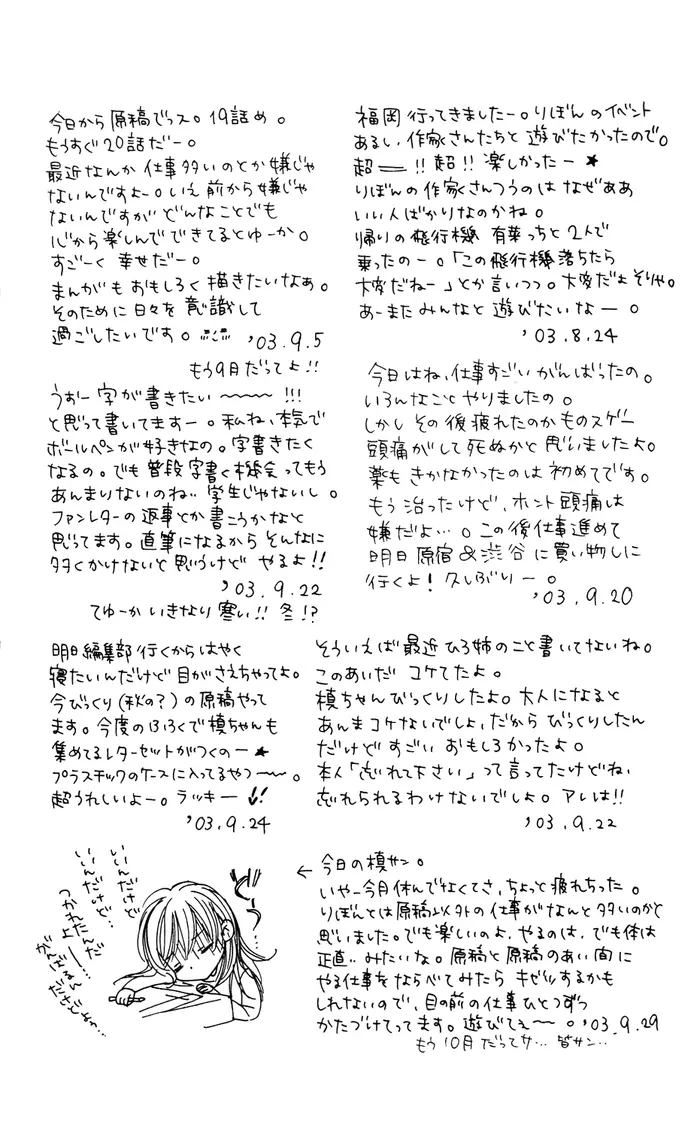 福岡行ってきましたー。りぼんのイベント
あるし、作家さんたちと遊びたかったので。
超――!! 超!! 楽しかったー★
りぼんの作家さんつうのはなぜああ
いい人ばかりなのかね。
帰りの飛行機 有葉っちと2人で
乗ったのー。「この飛行機落ちたら
大変だねー」とか言いつつ。大変だよそりゃ。
あーまたみんなと遊びたいなー。
'03.8.24
今日から原稿でっス。19話め。
もうすぐ20話だー。
最近なんか仕事多いのとか嫌じゃ
ないんですよー。いえ前から嫌じゃ
ないんですが どんなことでも
心から楽しんでできてるとゆーか。
すごーく幸せだー。
まんがもおもしろく描きたいなぁ。
そのために日々を意識して
過ごしたいです。
'03.9.5
もう9月だってよ!!
今日はね、仕事すごいがんばったの。
いろんなことやりましたの。
しかしその後疲れたのかものスゲー
頭痛がして死ぬかと思いましたよ。
薬もきかなかったのは初めてです。
もう治ったけど、ホント頭痛は
嫌だよ…。この後仕事進めて
明日原宿&渋谷に買い物しに
行くよ!久しぶりー。
'03.9.20
うおー字が書きたい〜〜〜!!!
と思って書いてますー。私ね、本気で
ボールペンが好きなの。字書きたく
なるの。でも普段字書く機会ってもう
あんまりないのね… 学生じゃないし。
ファンレターの返事とか書こうかなと
思ってます。直筆になるからそんなに
多くかけないと思うけど やるよ!!
'03.9.22
てゆーかいきなり寒い!! 冬!?
そういえば最近ひろ姉のこと書いてないね。
このあいだ コケてたよ。
槙ちゃんびっくりしたよ。大人になると
あんまコケないでしょ、だからびっくりしたん
だけどすごいおもしろかったよ。
本人「忘れて下さい」って言ってたけどね、
忘れられるわけないでしょ。アレは!!
'03.9.22
明日編集部行くからはやく
寝たいんだけど目がさえちゃってよ。
今びっくり(秋の?)の原稿やって
ます。今度のふろくで槙ちゃんも
集めてるレターセットがつくのー★
プラスチックのケースに入ってるやつ〜〜。
超うれしいよー。ラッキー!!
'03.9.24
←今日の槙サン。
いやー今月休んでなくてさ、ちょっと疲れちった。
りぼんとは原稿以外の仕事がなんと多いのかと
思いました。でも楽しいのよ、やるのは、でも体は
正直…みたいな。原稿と原稿のあい間に
やる仕事をならべてみたら キゼツするかも
しれないので、目の前の仕事ひとつずつ
かたづけてってます。遊びてぇ〜〜。'03.9.29
もう10月だってサ… 皆サン…
いいんだけど
いいんだけど…
つかれたんだ
よー…
がんばるん
だけどねっ…